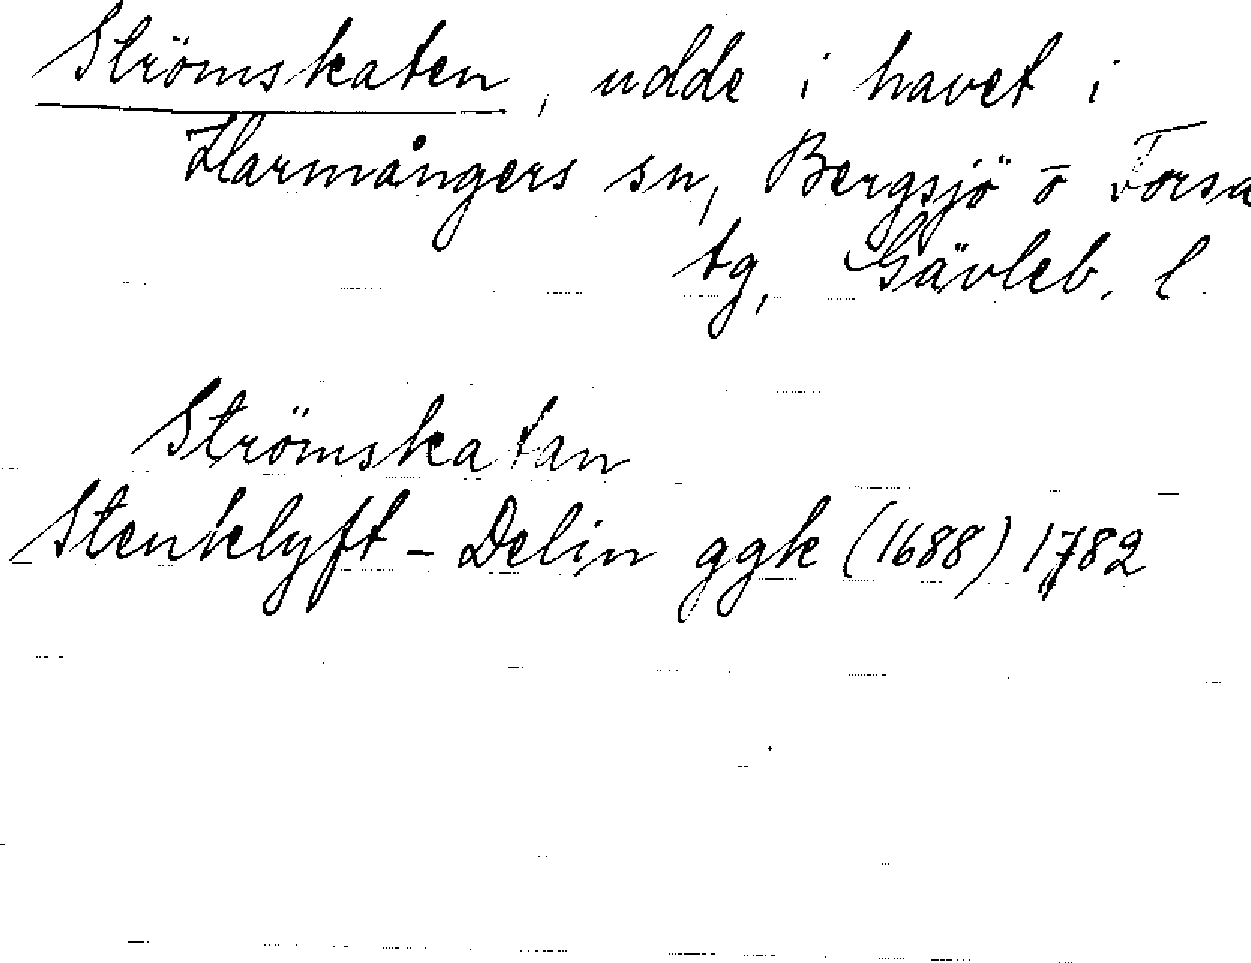 Strömskaten, udde i havet i
Harmångers sn, Bergsjö o Forsa
tg, Gävleb. l.
Strömskatan
Stenklyft - Delin ggk (1688) 1782